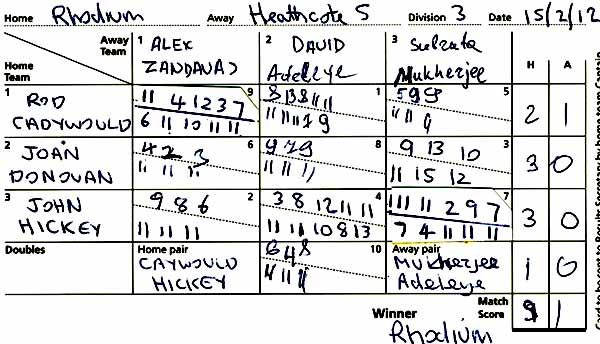 Home Rhodium Away Heathcote S Division 3 Date 15/2/12
Away Team 1 ALEX ZANDAVAD 2 DAVID Adeleye 3 Sulzata Mukherjee H A
Home Team
1 ROD CADYWOULD 9 1 5 2 1
11 4 12 3 7
6 11 10 11 11
5 9 9
11 11 9
2 JOAN DONOVAN 6 8 3 3 0
4 2 3 9 7 9 9 13 10
11 11 11 11 11 11 11 15 12
3 JOHN HICKEY 2 4 7 3 0
9 8 6 3 8 12 11 11 11 11 2 9 7
11 11 11 11 11 10 8 13 7 4 11 11 11
Doubles Home pair 10 Away pair
CAYWOULD HICKEY 6 4 8 Mukherjee Adeleye 1 0
11 11 11
Winner Match Score 9 1
Rhodium